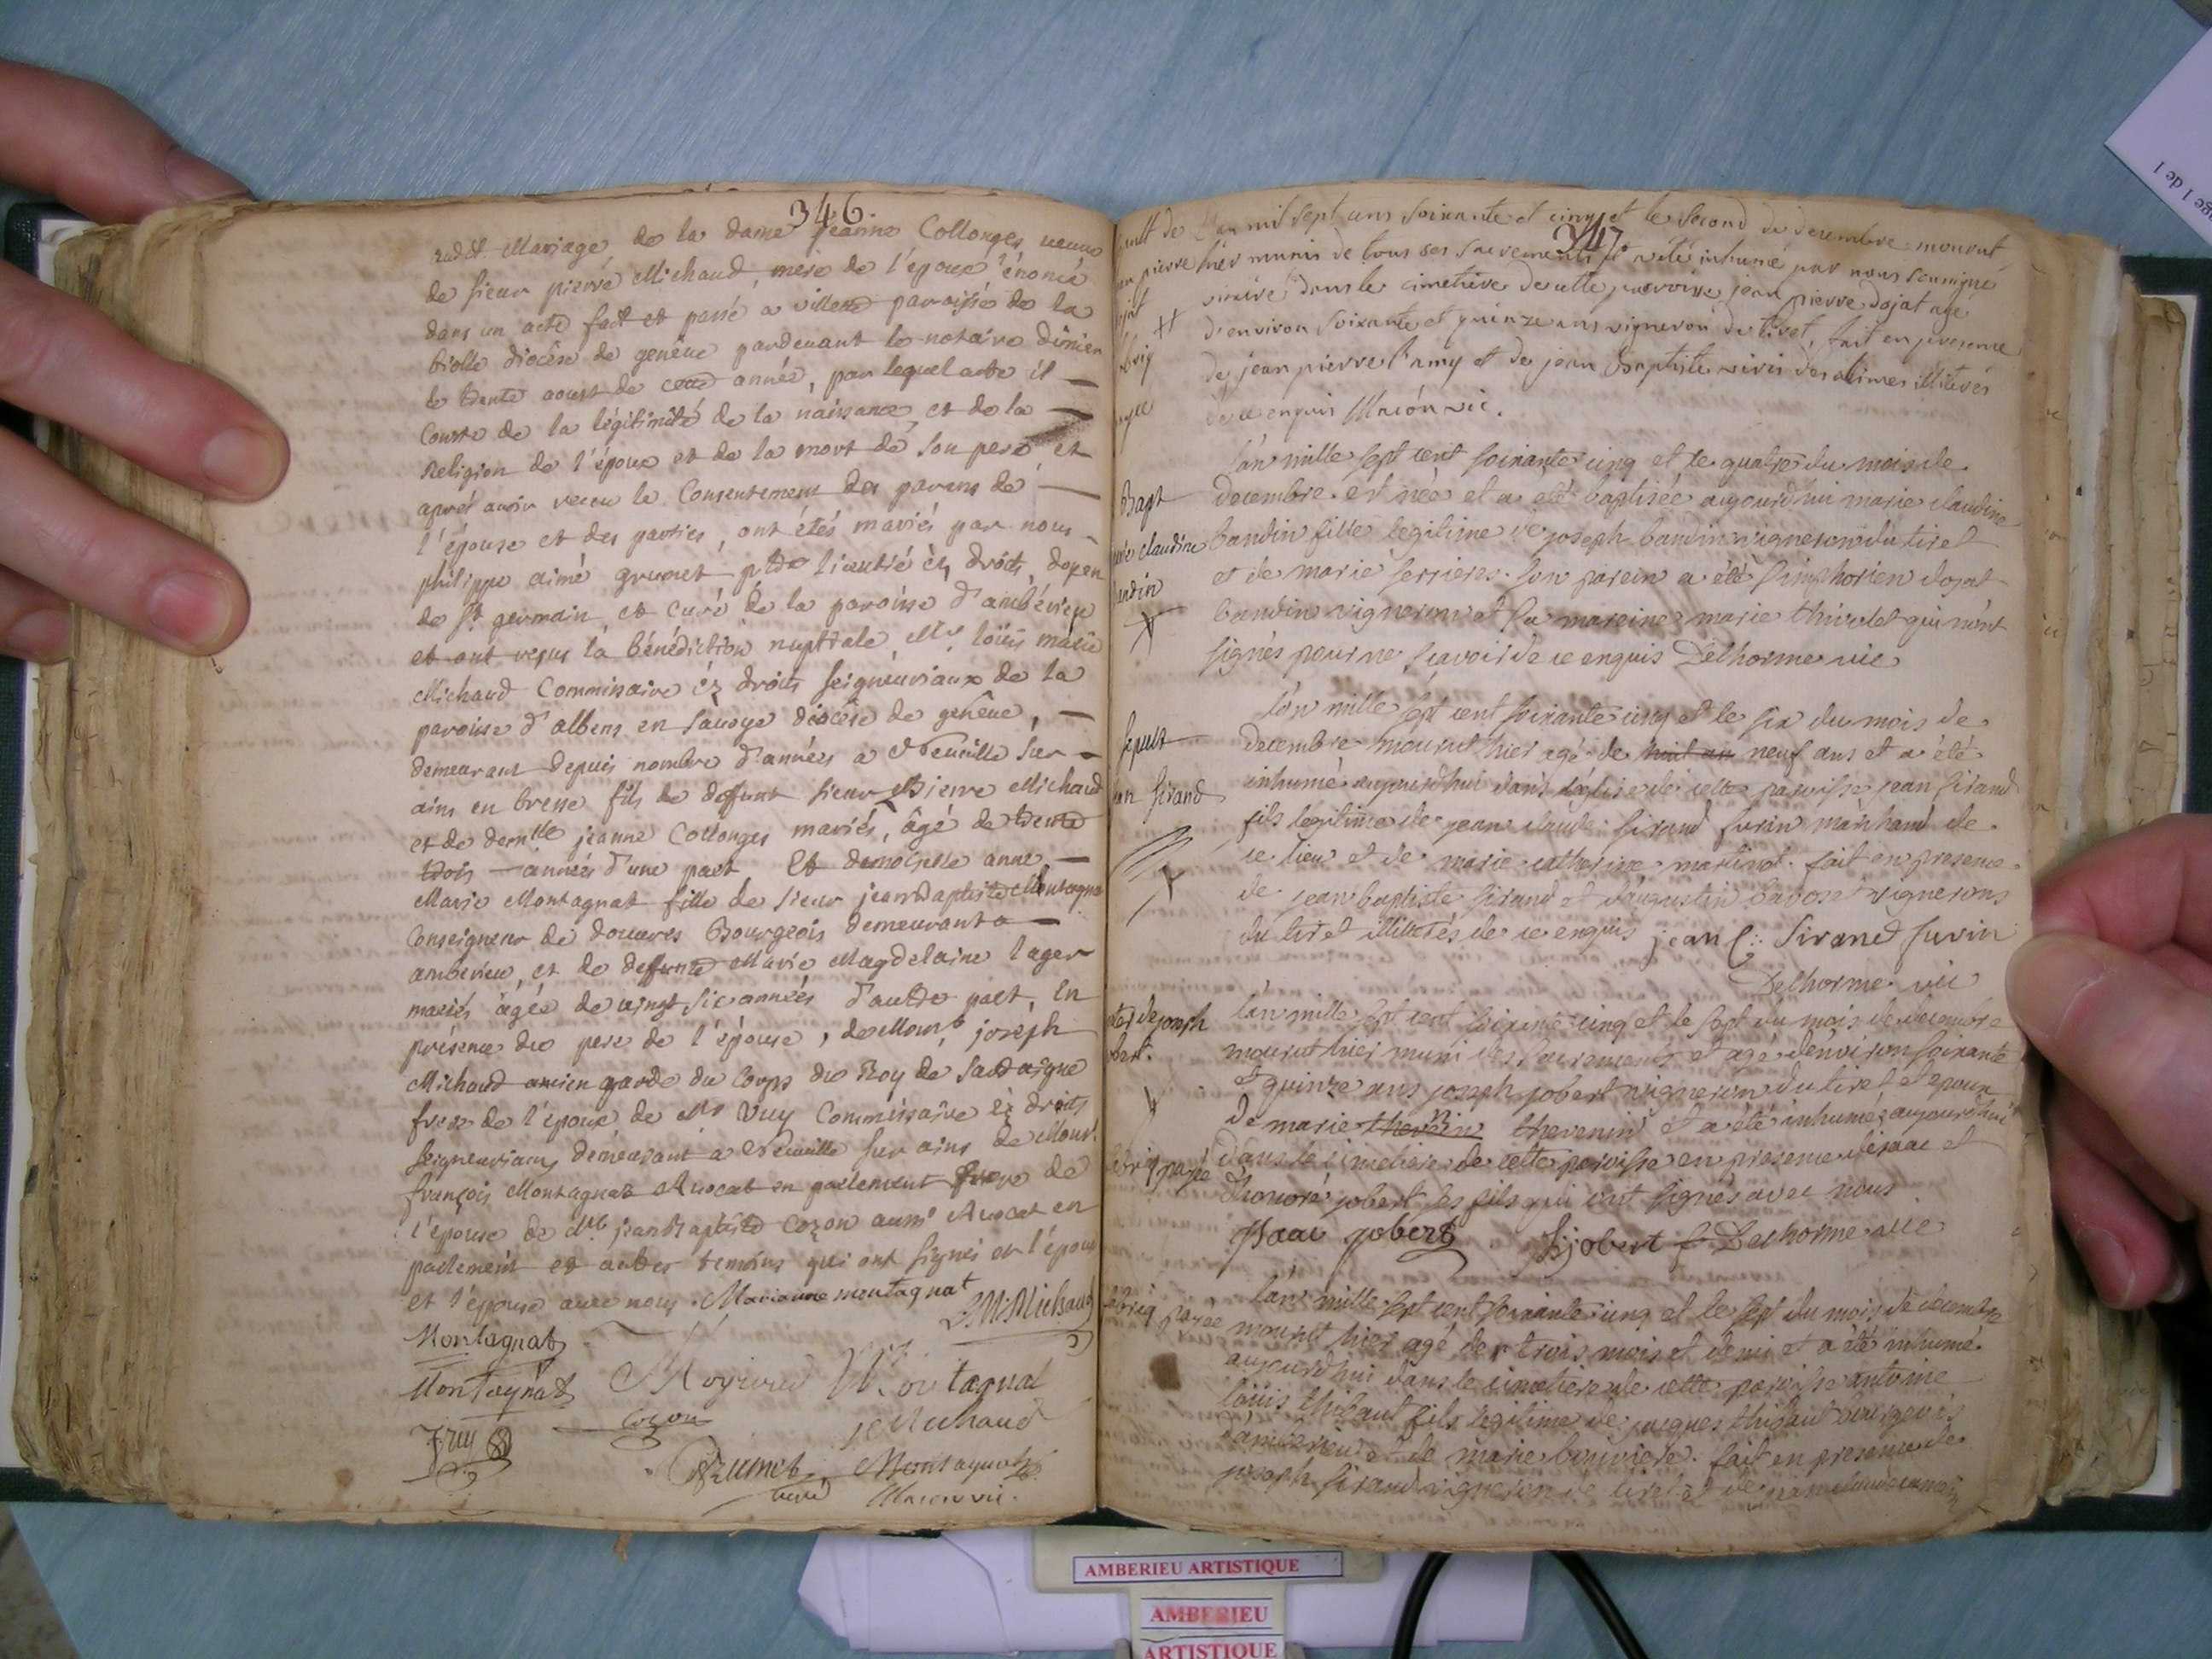 346.
audit Mariage de la dame jeanne Collonges veuve
de sieur pierre Michaud, mere de l'époux énoncé
dans un acte fait et passé a villette paroisse de la
biolle diocèse de genêve pardevant le notaire
le trente aoust de cette année, par lequel acte il
Conste de la légitimité de la naissance, et de la
Religion de l'époux et de la mort de son pere et
aprés avoir recu le Consentement des parens de
l'épouse et des parties, ont étés mariés par nous
philippe aimé grumet ptre licentié és droits, doyen
de St germain, et curé de la paroisse d'ambérieu
et ont reçus la bénédiction nuptiale, Mr loüis marie
Michaud Commissaire éz droits seigneuriaux de la
paroisse d'albens en Savoye diocèse de genêve,
demeurant depuis nombre d'années a Neuville sur
ains en bresse fils de deffunt sieur Pierre Michaud
et de demlle jeanne Collonges mariés, âgé de trente
trois années d'une part Et demoiselle anne
Marie Montagnat fille de sieur jean Baptiste Montagnat
Conseigneur de douvres Bourgeois demeurant a
amberieu, et de deffunte Marie Magdelaine lager
mariés âgée de vingt six années d'autre part, En
présence du pere de l'épouse, de joseph
Michaud ancien garde du Corps du Roy de Sardaigne
frere de l'époux de Mr Vuy Commissaire éz droits
Seigneuriaux demeurant a Neuville sur ains de
françois Montagnat Avocat en parlement frere de
l'épouse de Mr jean Baptiste Cozon aussi Avocat en
parlement et autres temoins qui ont signés et l'époux
et l'épouse avec nous. Marianne montagnat
LM Michaud
Montagnat
Montagnat
Montagnat
Cozon
Michaud
Grumet curé
Montagnat
Macon vic.
347.
L'an mil sept cens soixante et cinq et le second de decembre mourut
hier munis de tous ses sacremens et a été inhumé par nous soussigné
vicaire dans le cimetière de cette parroisse jean pierre dojat agé
d'environ soixante et quinze ans vigneron du tiret, fait en presence
de jean pierre l'amy et de jean Baptiste illiterés
de ce enquis Macon vic.
Bapt
claudine
baudin
l'an mille sept cent soixante cinq et le quatre du mois de
decembre est née et a été baptisée aujourd'hui marie claudine
baudin fille legitime de joseph baudin vigneron du tiret
et de marie ferrieres. son parein a été simphorien dojat
baudin vigneron et sa mareine marie thivolet qui n'ont
signés pour ne sçavoir de ce enquis Delhorme vic
sepult
jean sirand
l'an mille sept cent soixante cinq et le six du mois de
decembre mourut hier agé de huit an neuf ans et a été
inhumé aujourd'hui dans l'église de cette paroisse jean sirand
fils legitime de jean claude sirand surin marchand de
ce lieu et de marie catherine martinot. fait en presence
de jean baptiste sirand et d'augustin vignerons
du tiret illiterés de ce enquis jean C: Sirand surin
Delhorme vic
de joseph
jobert.
l'an mille sept cent soixante cinq et le sept du mois de decembre
mourut hier muni des sacremens et agé d'environ soixante
et quinze ans joseph jobert vigneron du tiret et epoux
de marie thevenin et a été inhumé aujourd'hui
payée
dans le cimetiere de cette paroisse en presence d'isaac et
d'honoré jobert ses fils qui ont signés avec nous
Isaac jobert
h jobert Delhorme vic
payée
l'an mille sept cent soixante cinq et le sept du mois de decembre
mourut hier agé de trois mois et demi et a été inhumé
aujourd'hui dans le cimetiere de cette paroisse antoine
loüis thibaut fils legitime de jacques thibaut bourgeois
d'amberieu et de marie bouviere. fait en presence de
joseph sirand vigneron de tiret et de
AMBERIEU ARTISTIQUE
AMBERIEU
ARTISTIQUE